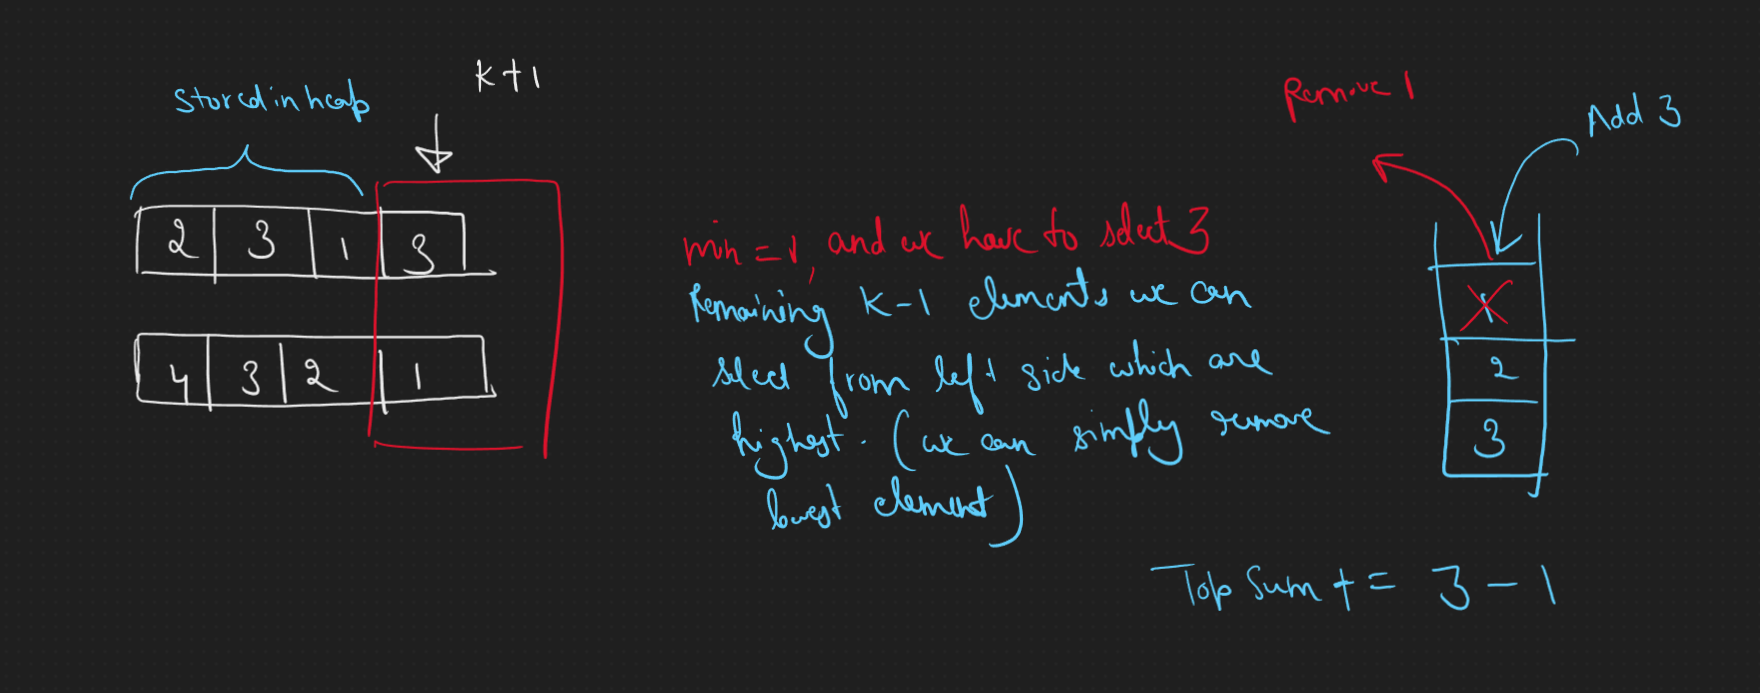 k+1
Stored in heap
Remove 1
Add 3
2 3 1 3
min = 1, and we have to select 3
Remaining K-1 elements we can
select from left side which are
highest. (we can simply remove
lowest element)
4 3 2 1
1
2
3
Top Sum += 3 - 1